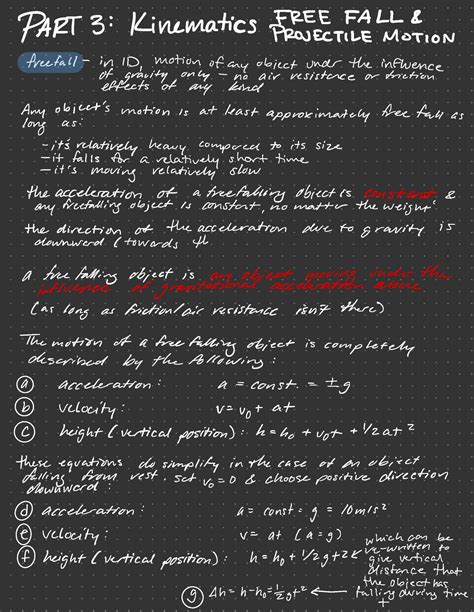 PART 3: Kinematics FREE FALL &
PROJECTILE MOTION
freefall - in 1D, motion of any object under the influence
of gravity only - no air resistance or friction
effects of any kind
Any object's motion is at least approximately free fall as
long as:
- it's relatively heavy compared to its size
- it falls for a relatively short time
- it's moving relatively slow
the acceleration of a freefalling object is constant &
any freefalling object is constant, no matter the weight
the direction of the acceleration due to gravity is
downward (towards
a free falling object is any object moving under the
influence of gravitational acceleration alone
(as long as friction/air resistance isn't there)
The motion of a free falling object is completely
described by the following:
(a) acceleration: a = const. = ±g
(b) velocity: v = v₀ + at
(c) height (vertical position): h = h₀ + v₀t + 1/2 at²
these equations do simplify in the case of an object
falling from rest. set v₀ = 0 & choose positive direction
downward:
(d) acceleration: a = const = g = 10m/s²
(e) velocity: v = at (a = g)
(f) height (vertical position): h = h₀ + 1/2 gt²
which can be
re-written to
give vertical
distance that
the object has
falling during time
t
(g) Δh = h - h₀ = 1/2 gt²